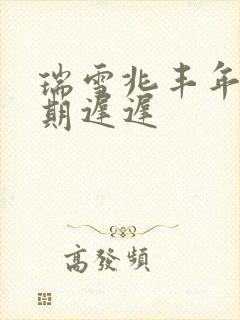 瑞雪兆丰年
期遲遲
高發頻